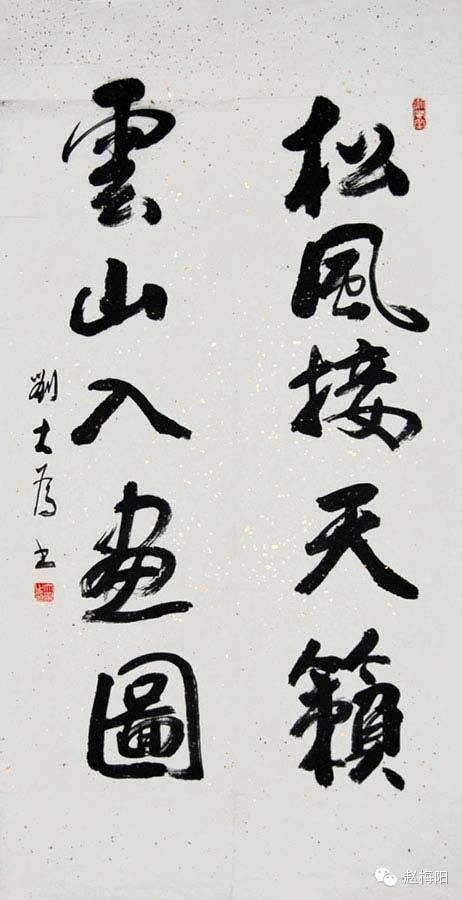 松風接天籟
雲山入画圖
劉大為书
赵梅阳